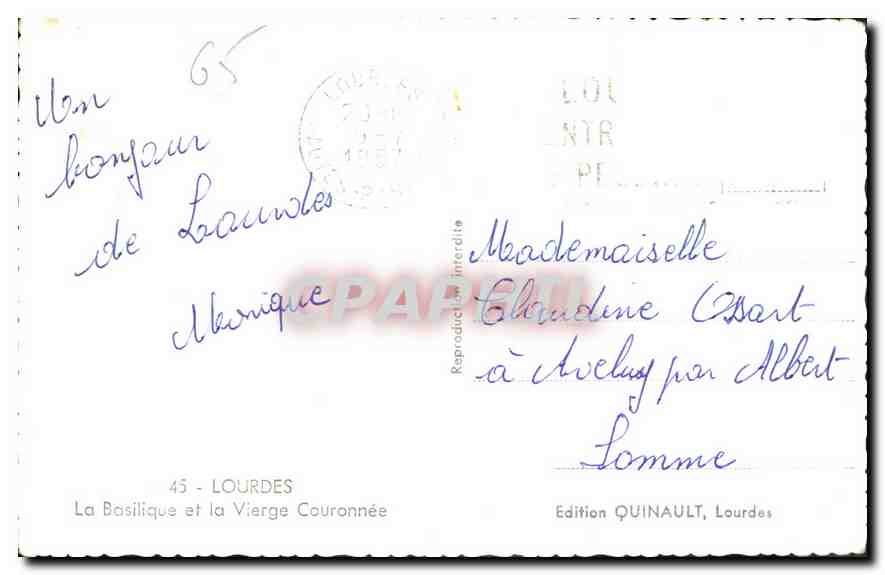 65
Un
bonjour
de Lourdes
Monique
LOURDES
1957
LOU
NTR
PE
Mademoiselle
Claudine Ossart
à Aveluy par Albert
Somme
Reproduction interdite
CPAPHIL
45 - LOURDES
La Basilique et la Vierge Couronnée
Edition QUINAULT, Lourdes